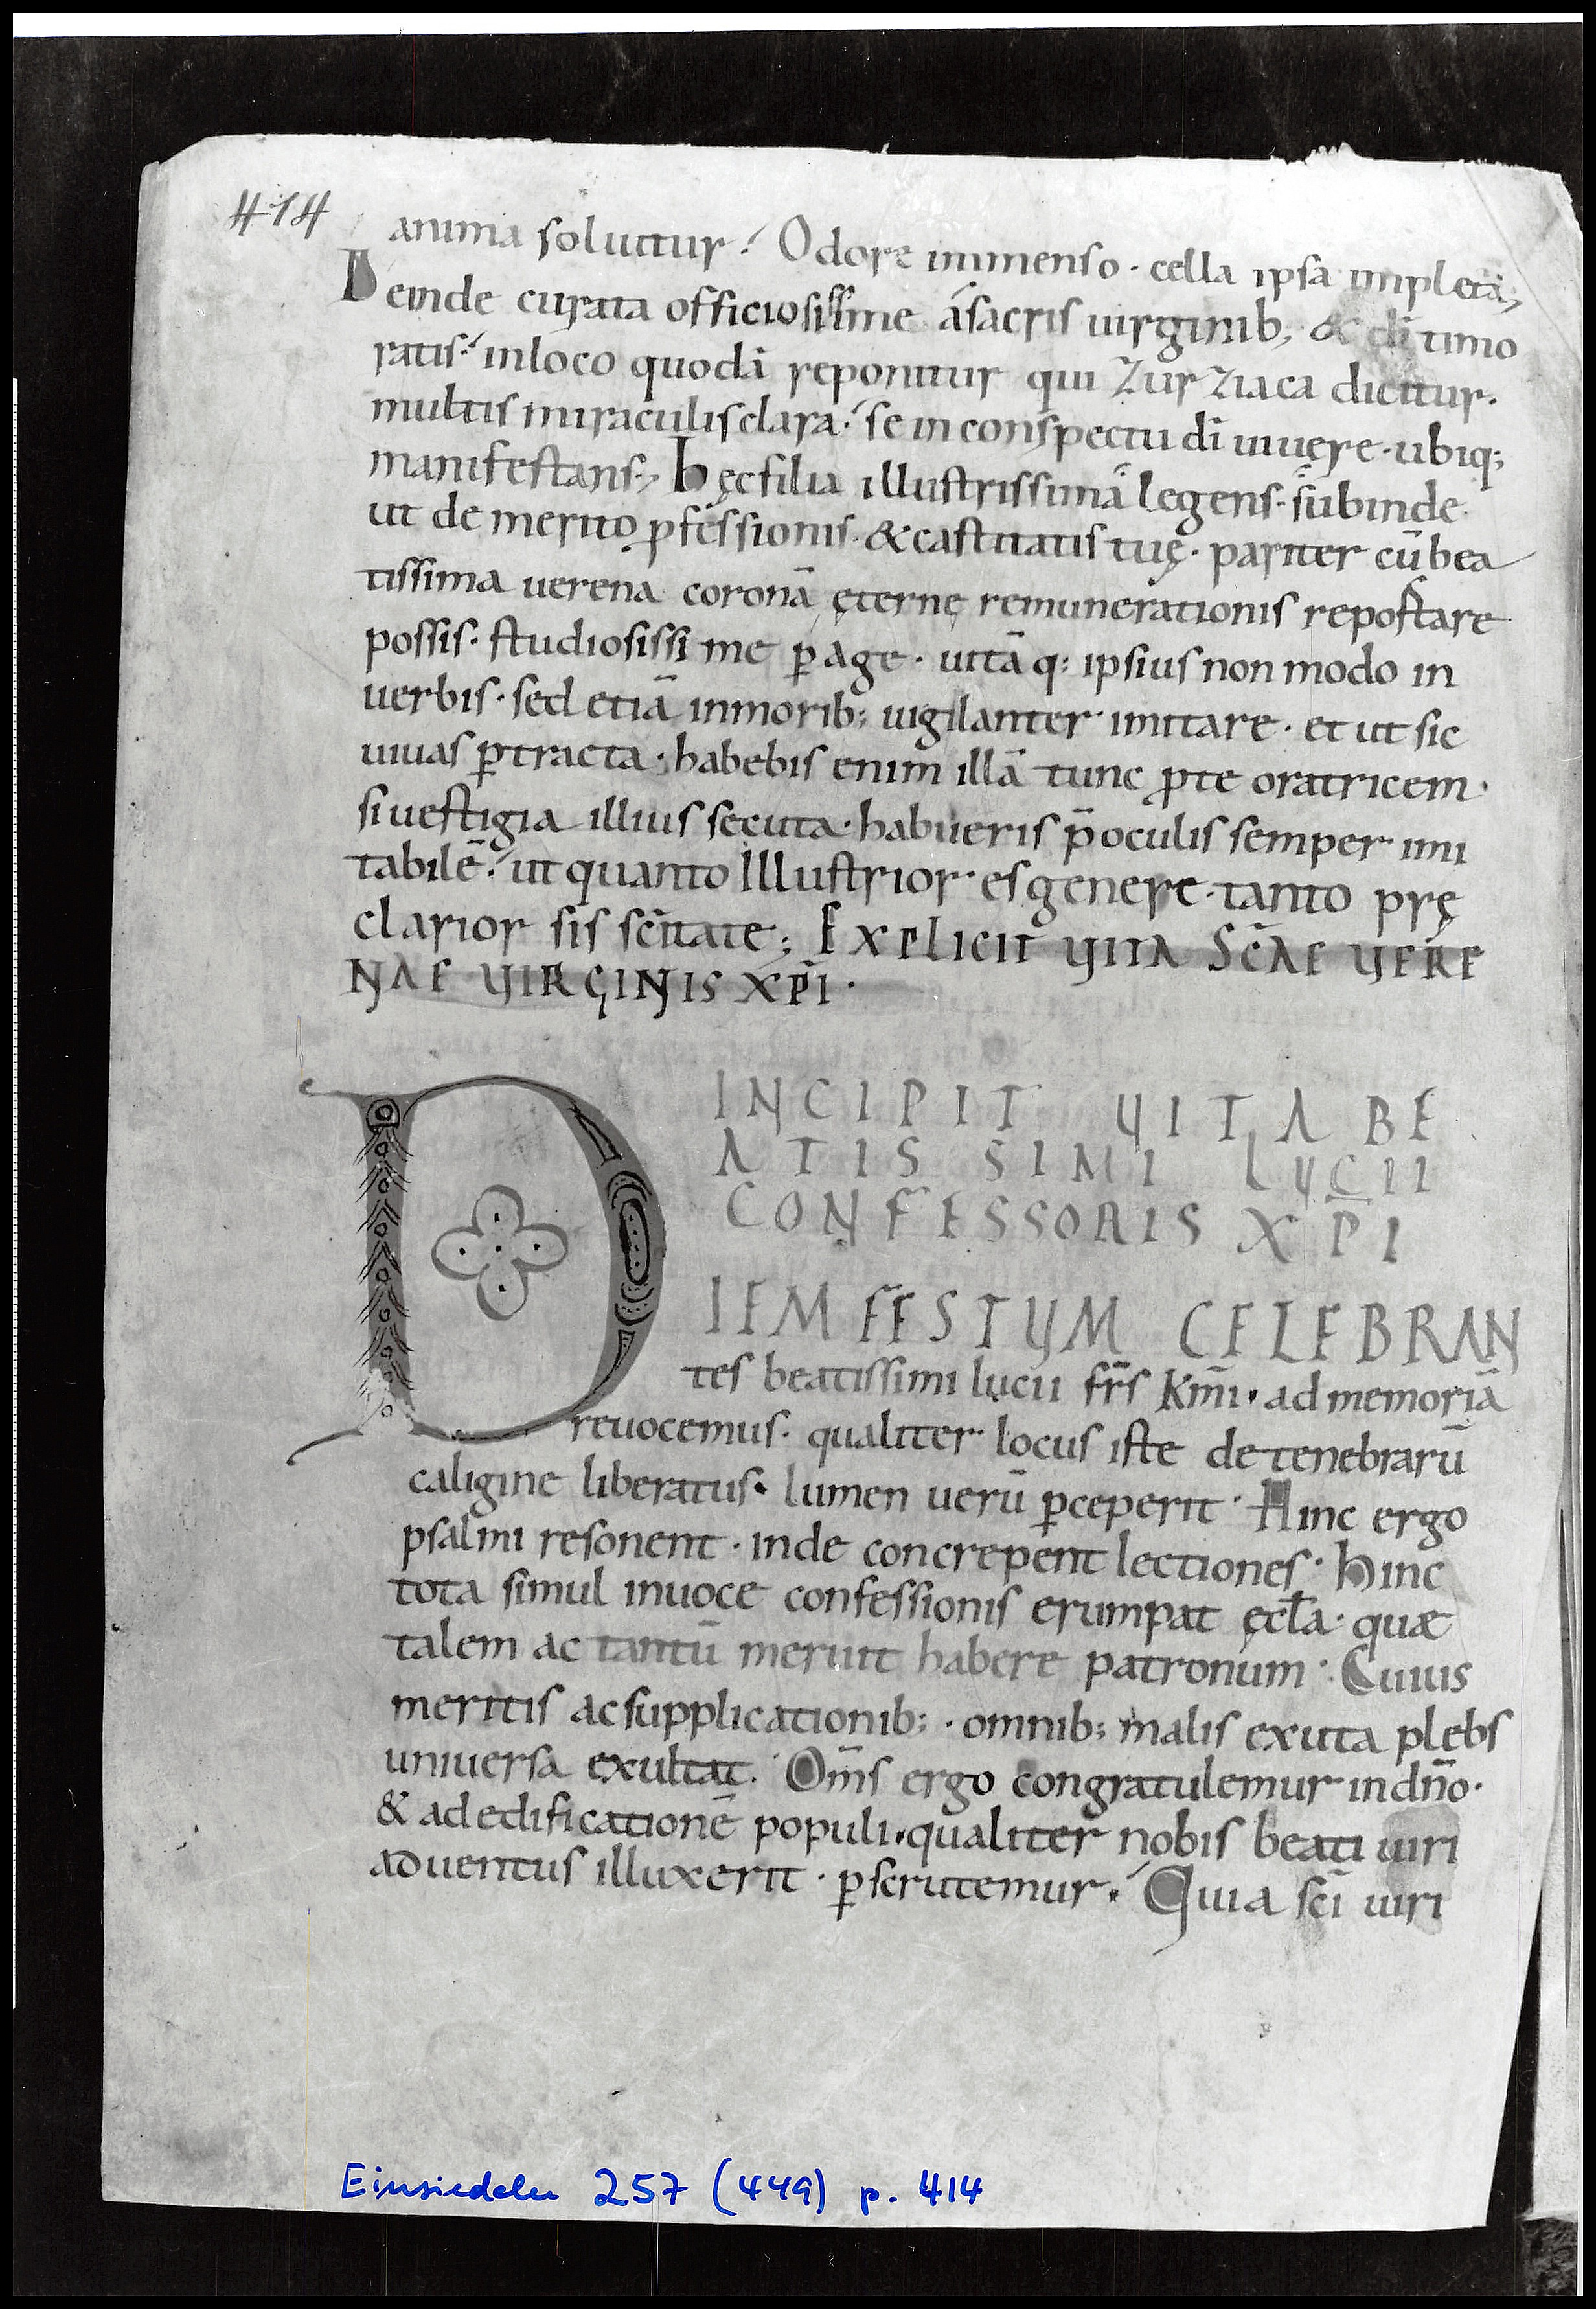 414
anima soluitur. Odore inmenso · cella ipsa impleta;
Deinde curata officiosissime a sacris uirginib; & dī timo
ratis. in loco quodā reponitur qui Zurziaca dicitur.
multis miraculis clara. se in conspectu dī uiuere · ubiq;
manifestans; Hęc filia illustrissima legens · subinde
ut de merito pfessionis · & castitatis tuę · pariter cū bea
tissima uerena coronā ęternę remunerationis reportare
possis · studiosissime page · uitā q: ipsius non modo in
uerbis · sed etiā in morib; uigilanter imitare · et ut sic
uiuas ptracta · habebis enim illā tunc pte oratricem ·
si uestigia illius secuta · habueris p̄ oculis semper imi
tabilē. ut quanto Illustrior es genere · tanto prę
clarior sis scītate; EXPLICIT VITA SCĀE VERE
NAE VIRGINIS XP̄I ·
INCIPIT VITA BE
ATISSIMI LVCII
CONFESSORIS XP̄I
DIEM FESTVM CELEBRAN
tes beatissimi lucii fr̄s km̄i · ad memoriā
reuocemus · qualiter locus iste de tenebrarū
caligine liberatus · lumen uerū pceperit · Hinc ergo
psalmi resonent · inde concrepent lectiones · Hinc
tota simul in uoce confessionis erumpat ęcła · quae
talem ac tantū meruit habere patronum · Cuius
meritis ac supplicationib; · omnib; malis exuta plebs
uniuersa exultat · Om̄s ergo congratulemur in dn̄o ·
& ad edificationē populi · qualiter nobis beati uiri
aduentus illuxerit · pscrutemur. Quia sc̄i uiri
Einsiedeln 257 (449) p. 414